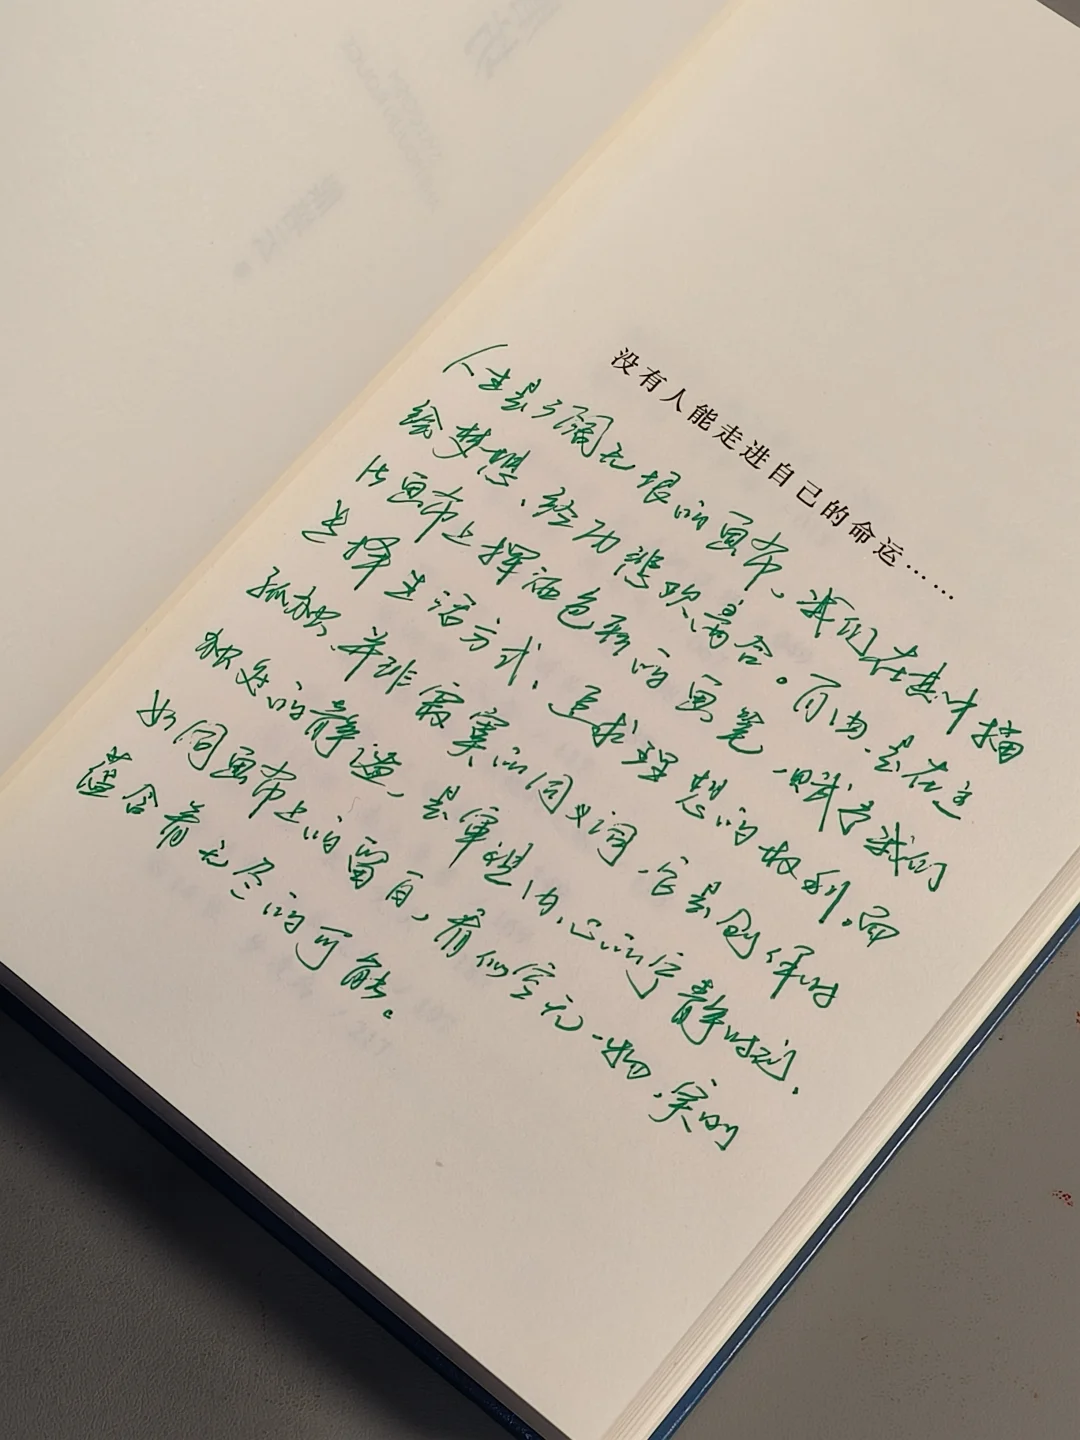 没有人能走进自己的命运……
人生是广阔无垠的画布，我们在其中描
绘梦想、经历悲欢离合。自由，是在这
张画布上挥洒色彩的画笔，赋予我们
选择生活方式、追求理想的权利。而
孤独，并非寂寞的同义词，它是创作时
独处的静谧，是审视内心的宁静时刻，
如同画布上的留白，看似空无一物，实则
蕴含着无尽的可能。